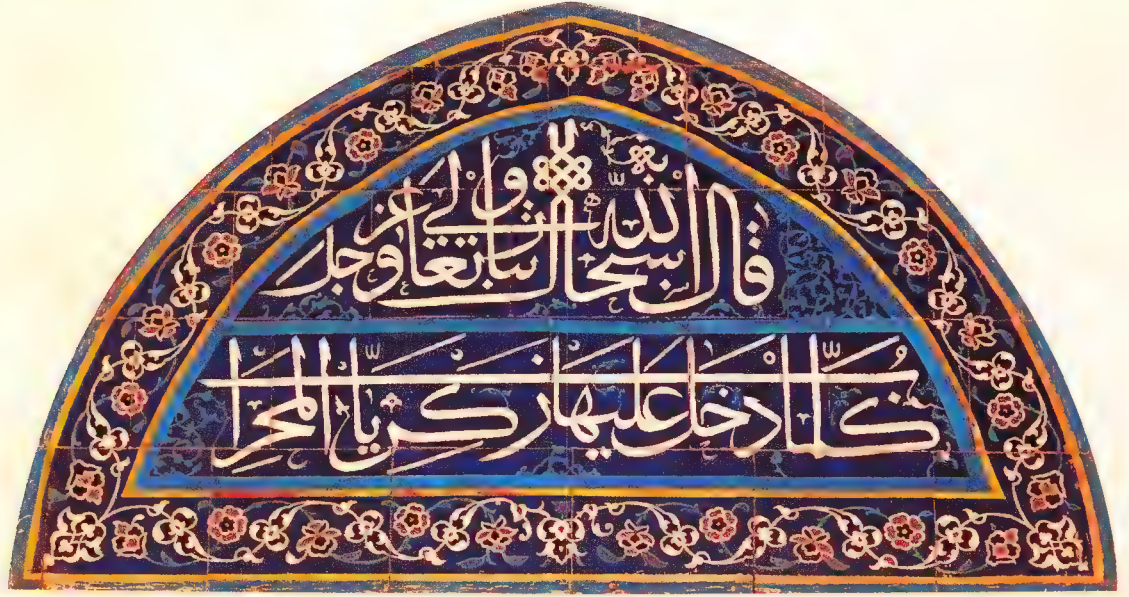 قال الله سبحانه وتعالى عز وجل
كلما دخل عليها زكريا المحراب